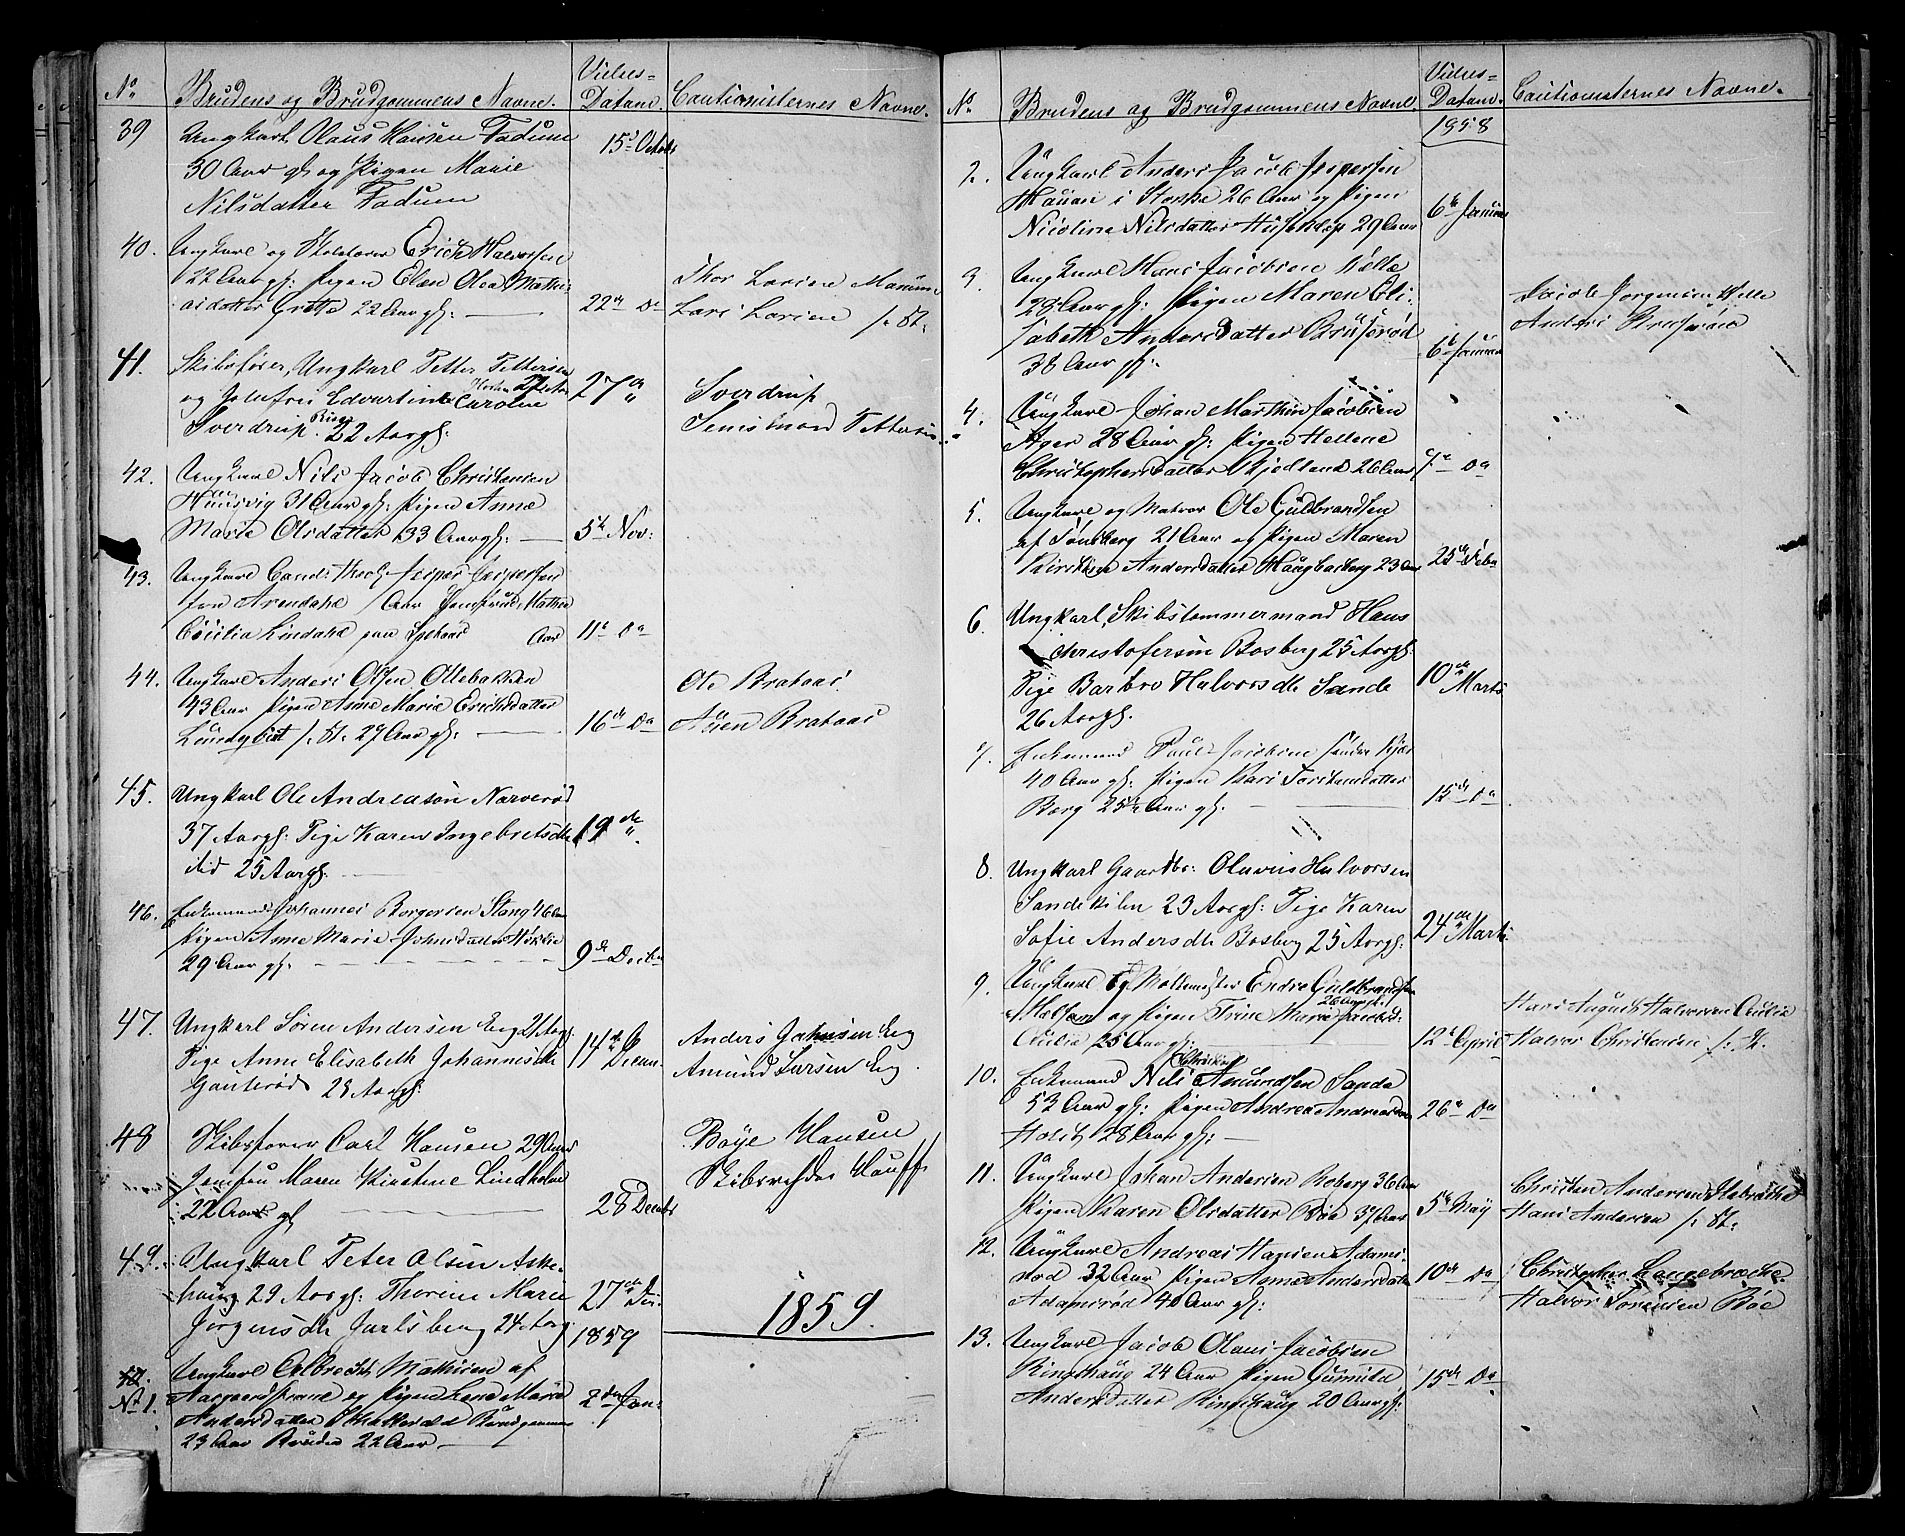 No Brudens og Brudgommens Navne. Vielses-Datum. Cautionisternes Navne.
39 Ungkarl Olaus Hansen Fadum 15d Octobr
30 Aar gl og Pigen Marie
Nilsdatter Fadum
40. Ungkarl og Erich Halvorsen
22 Aar gl: Pigen Elen Olea Mathi-
asdatter Grette 22 Aar gl: 22de Do
Thor Larsen
Lars Larsen
41. Skibsfører, Ungkarl Petter Pettersen
og Jomfru Edvartine Caroline 27 Aar 27de "
Sverdrup. 22 Aargl:
Sverdrup
Pettersen
42. Ungkarl Nils Jacob Christensen
Huusvig 31 Aar gl: Pigen Anne
Marie Olsdatter 33 Aar gl: 5te Nov:
43. Ungkarl Cand: Jesper Jespersen
fra Arendahl Aar Jomfrue Mathea
Cecilia Lindahl paa Aar 11te Do
44. Ungkarl Anders Olsen Ollebakken
43 Aar Pigen Anne Marie Erichsdatter
Lundqvist /: St: 29 Aar gl: 16de Do
Ole Brataas
Brataas
45. Ungkarl Ole Andreasøn Narverød
37 Aargl: Pige Karen Ingebretsdtr 19de "
ibid 25 Aargl.
46. Enkemand Johannes Borgersen Stang 46 Aar
Pigen Anne Marie Johnsdatter
29 Aar gl. 9de Decbr
47. Ungkarl Søren Andersen Eeg 21 Aargl:
Pige Anne Elisabeth Johannesdtr 14de
Gauterød 23 Aargl:
Anders Johnsen Eeg
Amund Larsen Eeg
48 Skibsfører Carl Hansen 29 Aar
Jomfru Maren Kirstine Lindholm
22 Aar gl 28 Decembr
Boye Hansen
Skibsrheder Hauff
49. Ungkarl Peter Olsen Aske-
haug 29 Aargl: Thorine Marie 27de
Jørgensdtr Jarlsberg 24 Aarg. 1859
1859.
No 1. Ungkarl Albrecht Mathisen af
Aasgaardstrand og Pigen Lene Marie
Andersdatter Brudgommen 2den Jan:
23 Aar Bruden 22 Aar
No Brudens og Brudgommens Navne Vielses-Datum. Cautionisternes Navne.
1858
2. Ungkarl Anders Jacob Jespersen
i Stokke 26 Aar og Pigen
Nicoline Nilsdatter 29 Aar 6te Januar
3. Ungkarl Hans Jacobsen Velle
28 Aar gl: Pigen Maren Eli-
sabeth Andersdatter Bruserød
38 Aar gl: 6te Januar
Jacob Jørgensen Velle
Anders
4. Ungkarl Johan Marthin Jacobsen
Ager 28 Aar gl: Pigen Hellene
Christophersdatter 26 Aar 7de Do
5. Ungkarl og Matros Ole Guldbrandsen
af Tønsberg 21 Aar og Pigen Maren
Kirstine Andersdatter Haugbakberg 23 Aar 25de Febr
6. Ungkarl, Skibstømmermand Hans
Christofersøn Bosberg 25 Aargl:
Pige Barbro Halvorsdtr Sande 10de Marts
26 Aargl.
7. Enkemand Paul Jacobsen Sønder
40 Aar gl: Pigen Kari Torstensdatter
Berg 25 Aar gl: 15de Do
8. Ungkarl Gaardbr: Olavus Halvorsen
Sandekilen 23 Aargl: Pige Karen
Sofie Andersdtr Bosberg 25 Aargl: 24de Marts
9. Ungkarl og Møllemester Endre Guldbrandsen
26 Aar gl.
og Pigen Trine Marie Jacobsd:
Cecilia 25 Aar gl: 12te April
Hans August Halvorsen Cecilia
Halvor Christensen
10. Enkemand Nils Amundsen Sande
53 Aar gl: Pigen Andrea Andreasdtr 26de Do
Holst 28 Aar gl:
11. Ungkarl Johan Andersen Roberg 36 Aar
Pigen Karen Olsdatter Bøe 37 Aar 5te May
Christen Andersen
Hans Andersen /: St:
12. Ungkarl Andreas Hansen Adams-
rød 32 Aar Pigen Anne Andersdatter 10de Do
Adamsrød 40 Aar gl:
Christopher Langebrække
Halvor Sørensen Bøe
13. Ungkarl Jacob Olaus Jacobsen
Ringshaug 24 Aar Pigen Gunnild 15de Do
Andersdatter Ringshaug 20 Aar gl: